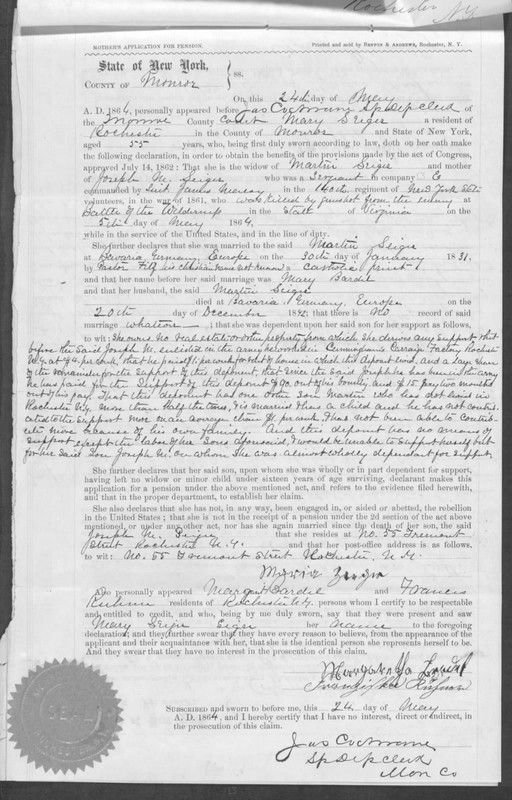 Rochester
N.Y.
MOTHER'S APPLICATION FOR PENSION.
Printed and sold by BENTON & ANDREWS, Rochester, N. Y.
State of New York,
COUNTY OF Monroe } ss.
On this 24th day of May
A. D. 1864, personally appeared before Jas Cochrane Sp Dep Clerk of
the Monroe County Court Mary Seiger a resident of
Rochester in the County of Monroe and State of New York,
aged 55 years, who, being first duly sworn according to law, doth on oath make
the following declaration, in order to obtain the benefits of the provisions made by the act of Congress,
approved July 14, 1862: That she is the widow of Martin Seiger and mother
of Joseph M. Seiger who was a Sergeant in company E
commanded by Lieut James in the 140th regiment of New York State
volunteers, in the war of 1861, who was killed by gunshot from the enemy at
Battle of the Wilderness in the State of Virginia on the
5th day of May 1864,
while in the service of the United States, and in the line of duty.
She further declares that she was married to the said Martin Seiger
at Bavaria Germany, Europe on the 30th day of January 1831,
by Pastor his christian name not known a Catholic priest
and that her name before her said marriage was Mary Bardie
and that her husband, the said Martin Seiger
died at Bavaria, Germany, Europe on the
20th day of December that there is no record of said
marriage whatever; that she was dependent upon her said son for her support as follows,
to wit: She owns no real estate or other property from which She derives any Support that
before the Said Joseph M. enlisted in the army he worked in Cunningham's Carriage Factory Rochester
N.Y. at per week, that he paid per week for rent of house in which this deponent lived, and a large share
of the remainder for the Support of this deponent, that Since the Said Joseph has been in the army
he has paid for the Support of this deponent $90. out of his bounty and $15 per two months
out of his pay. That this deponent has one other son Martin who has not lived in
Rochester N.Y. more than half the time, is married & has a child and he has not contrib-
uted to the Support more than an average than per week & has not been able to contrib-
ute more because of his own family. And this deponent has no means of
support except the labor of her Sons aforesaid, & would be unable to Support herself but
for her Said Son Joseph M. on whom She was almost wholly dependant for Support.
She further declares that her said son, upon whom she was wholly or in part dependent for support,
having left no widow or minor child under sixteen years of age surviving, declarant makes this
application for a pension under the above mentioned act, and refers to the evidence filed herewith,
and that in the proper department, to establish her claim.
She also declares that she has not, in any way, been engaged in, or aided or abetted, the rebellion
in the United States; that she is not in the receipt of a pension under the 2d section of the act above
mentioned, or under any other act, nor has she again married since the death of her son, the said
Joseph M. Seiger that she resides at No. 55 Tremont
Street Rochester N.Y. and that her post-office address is as follows,
to wit: No. 55 Tremont Street Rochester, N.Y.
Also personally appeared Margaret Bardie and Frances
residents of Rochester N.Y. persons whom I certify to be respectable
and entitled to credit, and who, being by me duly sworn, say that they were present and saw
Mary Seiger sign her name to the foregoing
declaration; and they further swear that they have every reason to believe, from the appearance of the
applicant and their acquaintance with her, that she is the identical person she represents herself to be.
And they swear that they have no interest in the prosecution of this claim.
Margaretha
SUBSCRIBED and sworn to before me, this 24 day of May
A. D. 1864, and I hereby certify that I have no interest, direct or indirect, in
the prosecution of this claim.
Jas Cochrane
Sp Dep Clerk
Mon Co